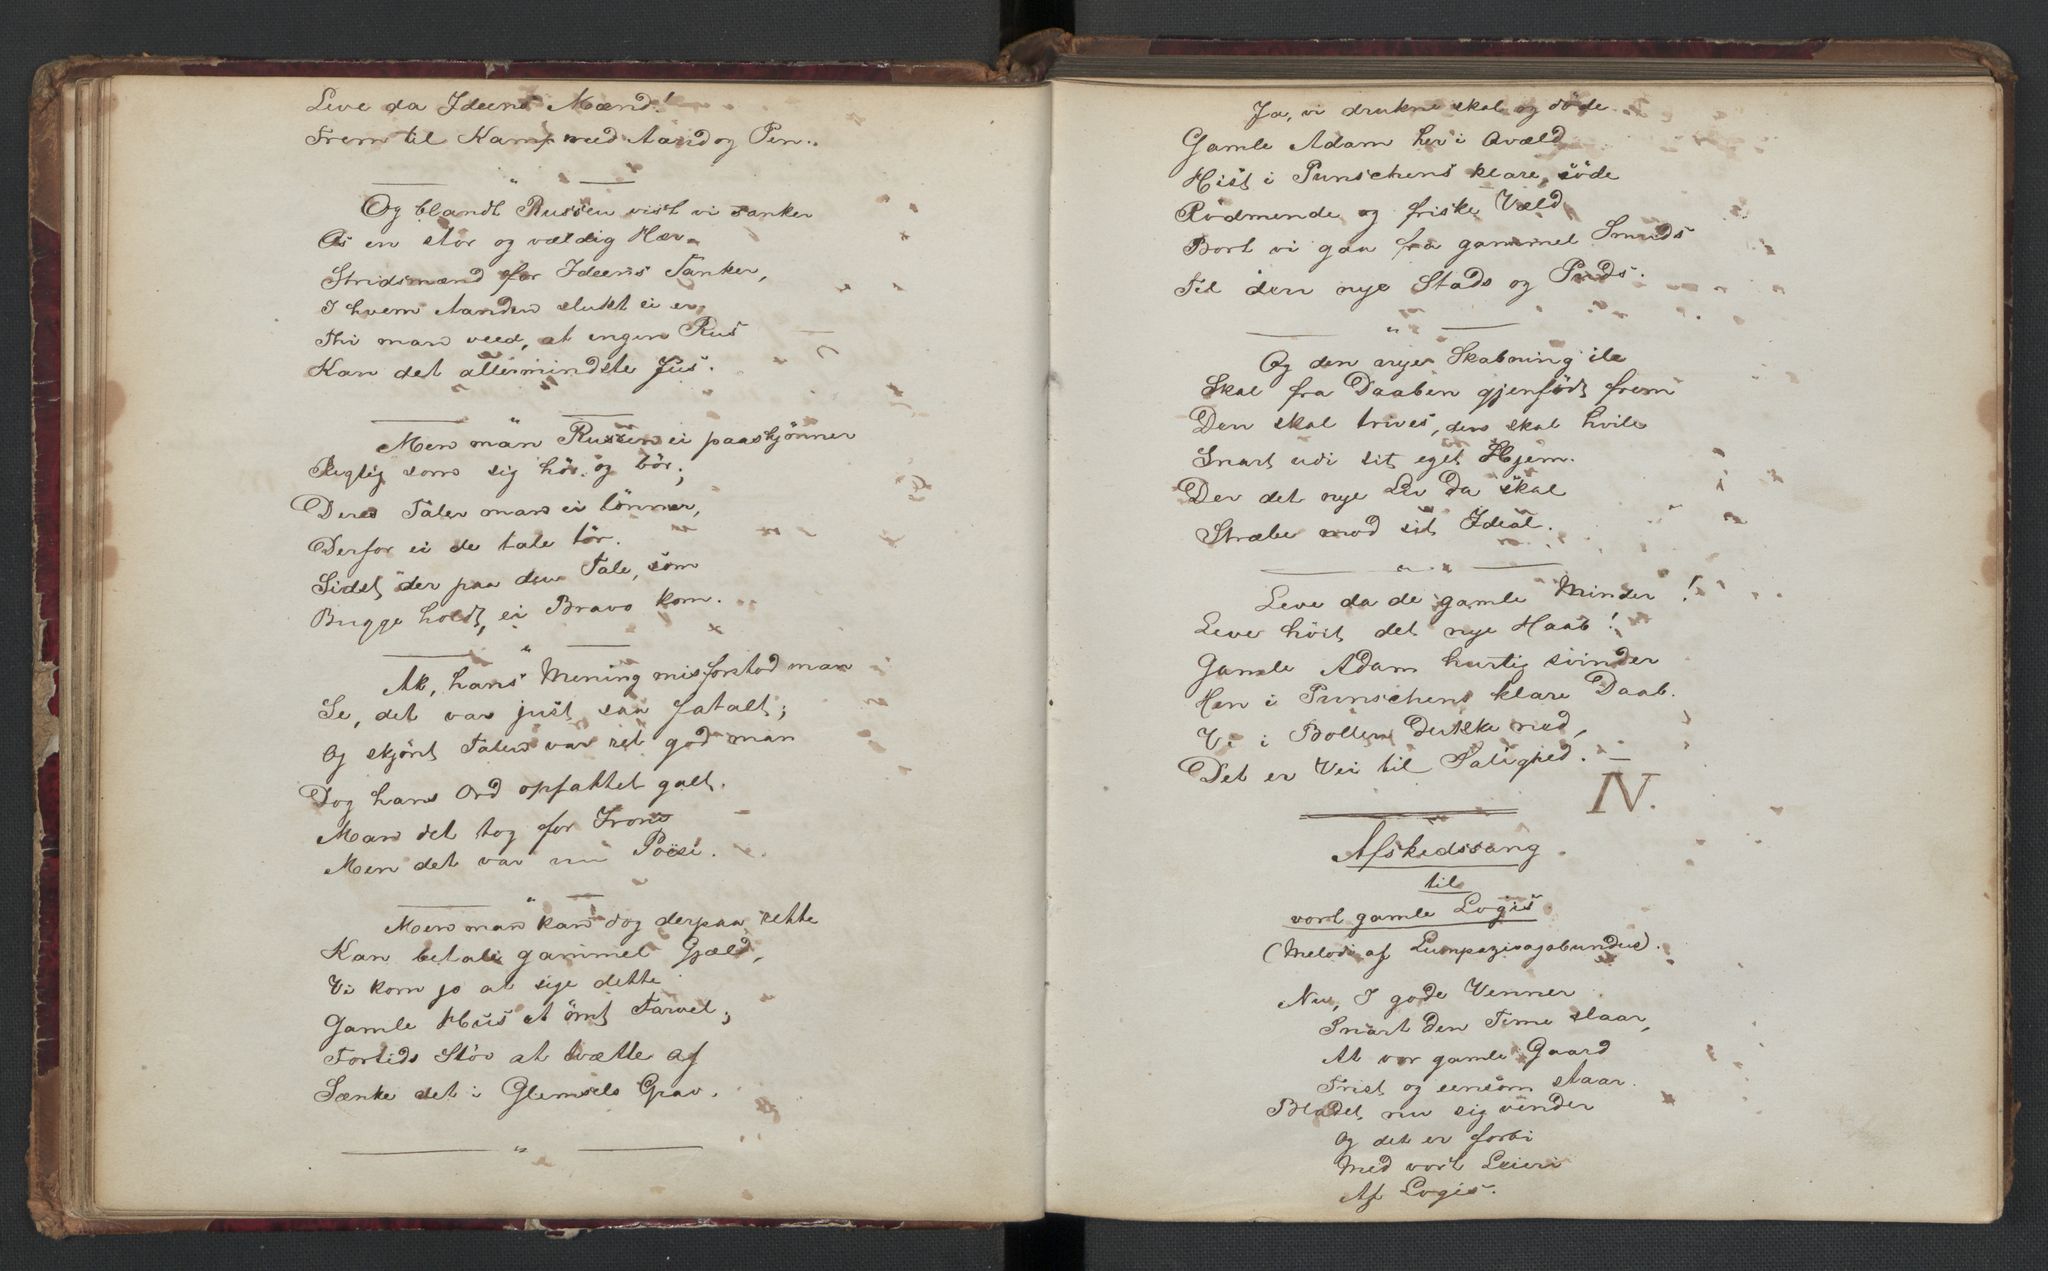 Leve da Ideens Mænd!
Frem til Kamp med Aand og Pen.
Og blandt Russen vist vi sanker
Os en stor og vældig Hær.
Stridsmænd for Ideens Tanker,
I hvem Aanden slukt ei er,
Thi man veed, at ingen Rus
Kan det allermindste Jus.
Men man Russen ei paaskjønner
Rigtig som sig hør og bør;
Deres Taler man ei lønner,
Derfor ei de tale tør.
Sidst der paa den Tale, som
Bugge holdt, ei Bravo kom.
Ak, hans Mening misforstod man
Se, det var just saa fatalt;
Og skjønt Talen var ret god man
Dog hans Ord opfattet galt.
Man det tog for Ironi
Men det var nu Poësi.
Men man kan dog derpaa rette
Kan betale gammel Gjæld,
Vi kom jo at sige dette
Gamle Hus et ømt Farvel;
Fortids Støv at tvætte af
Sænke det i Glemsels Grav.
Ja, vi drukne skal og døde
Gamle Adam her i Qvæld
Hist i Punschens klare, søde
Rødmende og friske Væld
Bort vi gaa fra gammel Smuds
Til den nye Stads og Puds.
Og den nye Skabning ile
Skal fra Daaben gjenfødt frem
Den skal trives, den skal hvile
Snart udi sit eget Hjem.
Der det nye Liv da skal
Stræbe mod sit Ideal.
Leve da de gamle Minder!
Leve høit det nye Haab!
Gamle Adam hurtig svinder
Hen i Punschens klare Daab.
Vi i Bollen dukke ned,
Det er Vei til Salighed.
N.
Afskedssang
til
vort gamle Logis.
(Melodi af Lumpazivagabundus).
Nu, I gode Venner
Snart den Time slaar,
At vor gamle Gaard
Trist og eensom staar.
Bladet nu sig vender
Og det er forbi
Med vort Leieri
Af Logis.